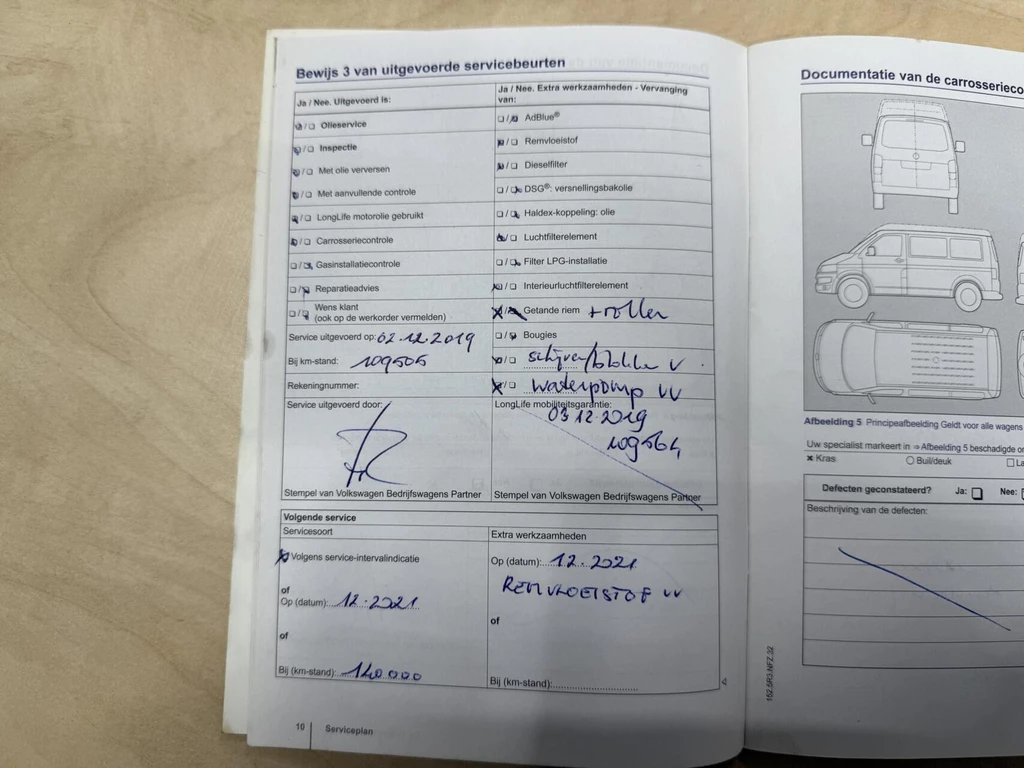 Bewijs 3 van uitgevoerde servicebeurten
Ja / Nee. Uitgevoerd is:
Olieservice
Inspectie
Met olie verversen
Met aanvullende controle
LongLife motorolie gebruikt
Carrosseriecontrole
Gasinstallatiecontrole
Reparatieadvies
Wens klant
(ook op de werkorder vermelden)
Service uitgevoerd op: 02.12.2019
Bij km-stand: 109505
Rekeningnummer:
Service uitgevoerd door:
Stempel van Volkswagen Bedrijfswagens Partner
Ja / Nee. Extra werkzaamheden - Vervanging
van:
AdBlue®
Remvloeistof
Dieselfilter
DSG®: versnellingsbakolie
Haldex-koppeling: olie
Luchtfilterelement
Filter LPG-installatie
Interieurluchtfilterelement
Getande riem + rollen
Bougies
schijven/blokken V
waterpomp VV
LongLife mobiliteitsgarantie:
03.12.2019
109564
Stempel van Volkswagen Bedrijfswagens Partner
Volgende service
Servicesoort
Volgens service-intervalindicatie
of
Op (datum): 12.2021
of
Bij (km-stand): 140.000
Extra werkzaamheden
Op (datum): 12.2021
REMVLOEISTOF VV
of
Bij (km-stand):
10
Serviceplan
Documentatie van de carrosserieco
Afbeelding 5 Principeafbeelding Geldt voor alle wagens
Uw specialist markeert in ⇒ Afbeelding 5 beschadigde
Kras
Buil/deuk
La
Defecten geconstateerd? Ja: Nee:
Beschrijving van de defecten:
152.5R3.NFZ.32